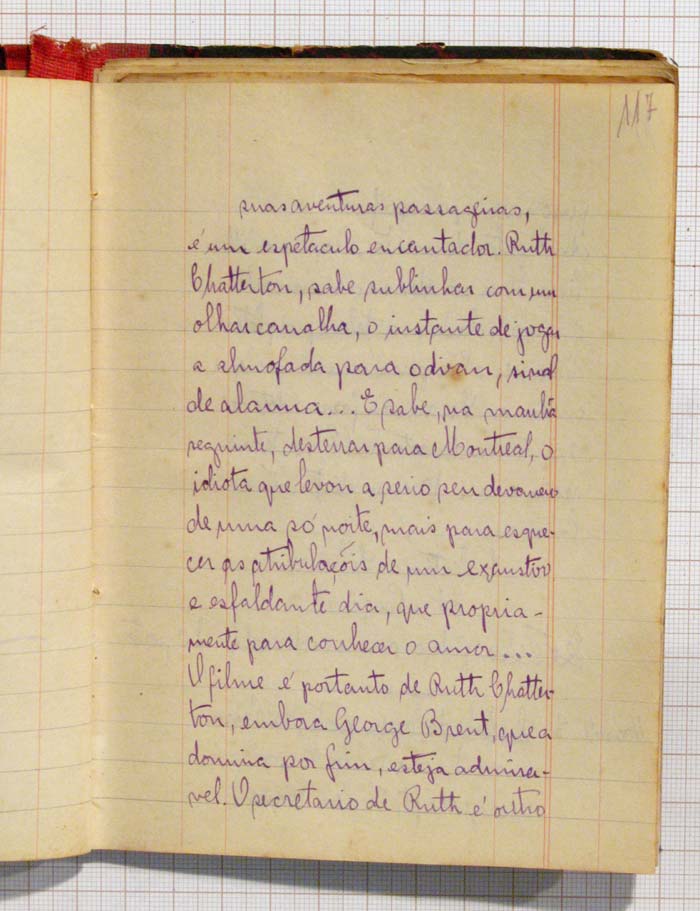 117
suas aventuras passageiras,
é um espetaculo encantador. Ruth
Chatterton, sabe sublinhar com um
olhar canalha, o instante de jogar
a almofada para o divan, sinal
de alarma... E sabe, na manhã
seguinte, desterrar para Montreal, o
idiota que levou a serio seu devaneio
de uma só noite, mais para esque-
cer as atribulaçõis de um exaustivo
e esfaldante dia, que propria-
mente para conhecer o amor...
O filme é portanto de Ruth Chatter-
ton, embora George Brent, que a
domina por fim, esteja admira-
vel. O secretario de Ruth é outro